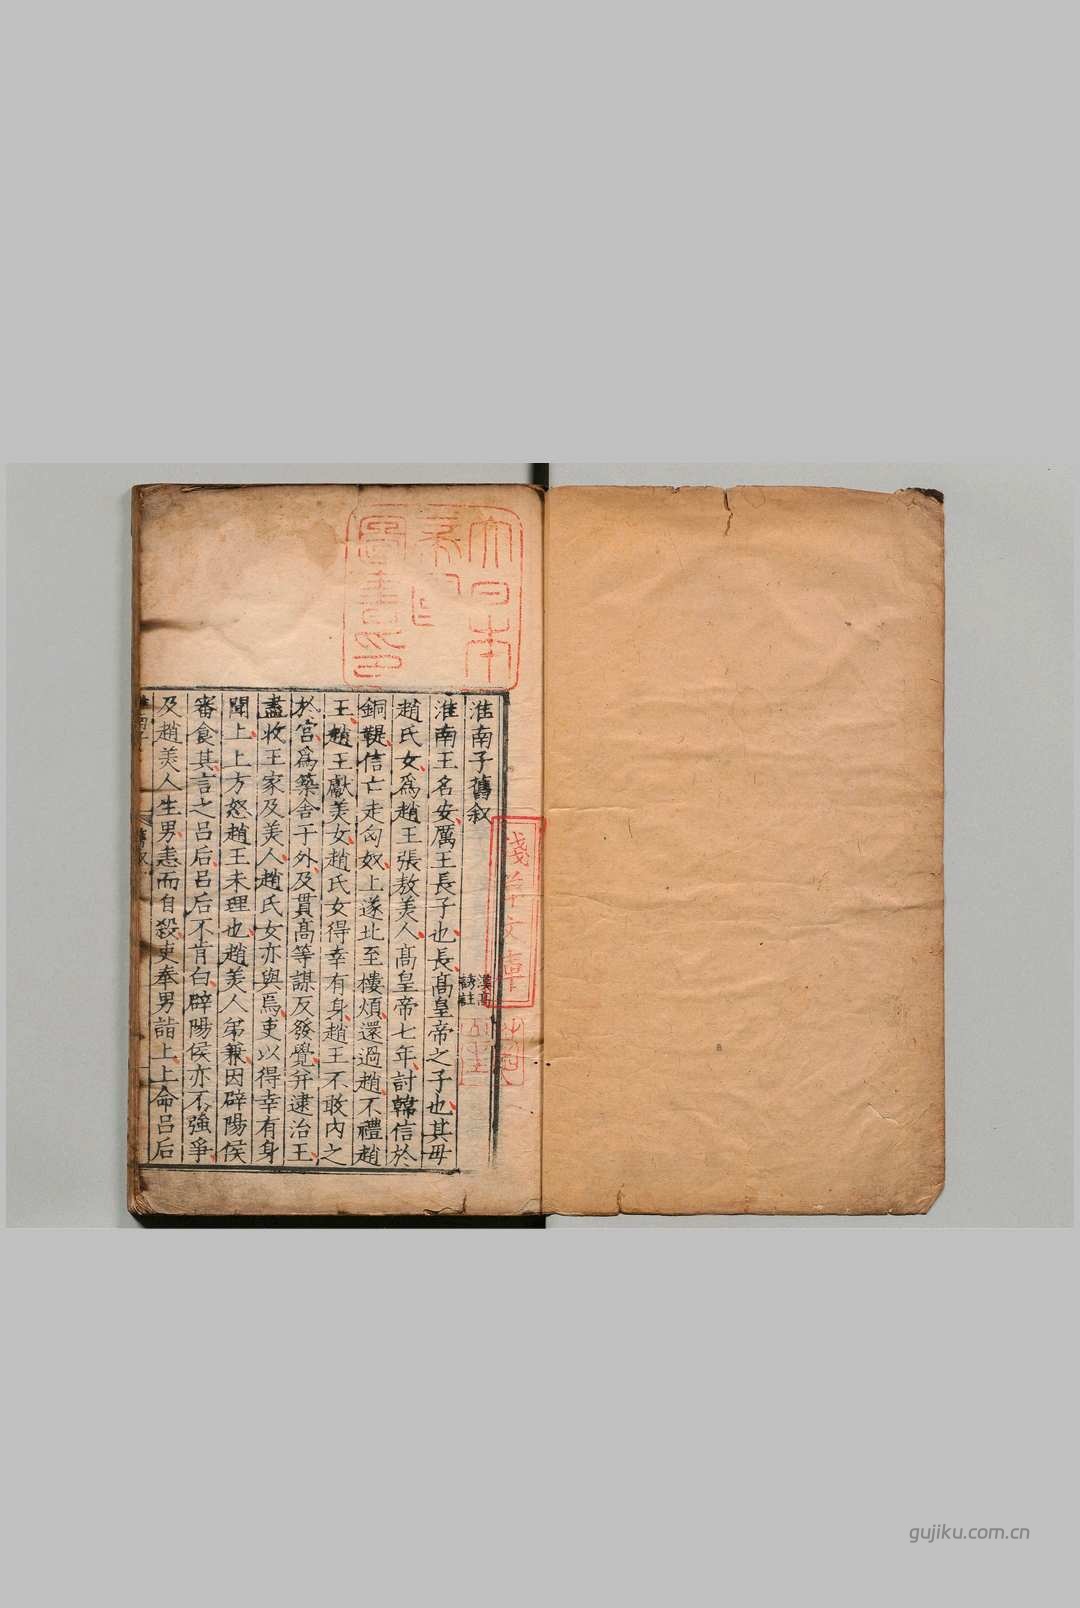 淮南子舊叙
漢高
誘註
淮南王名安厲王長子也長高皇帝之子也其母
趙氏女爲趙王張敖美人高皇帝七年討韓信於
銅鞮信亡走匈奴上遂北至樓煩還過趙不禮趙
王趙王獻美女趙氏女得幸有身趙王不敢內之
於宮爲築舍于外及貫高等謀反發覺并逮治王
盡收王家及美人趙氏女亦與焉吏以得幸有身
聞上上方怒趙王未理也趙美人弟兼因辟陽侯
審食其言之吕后吕后不肯白辟陽侯亦不強爭
及趙美人生男恚而自殺吏奉男詣上上命吕后
大日本
圖書印
gujiku.com.cn